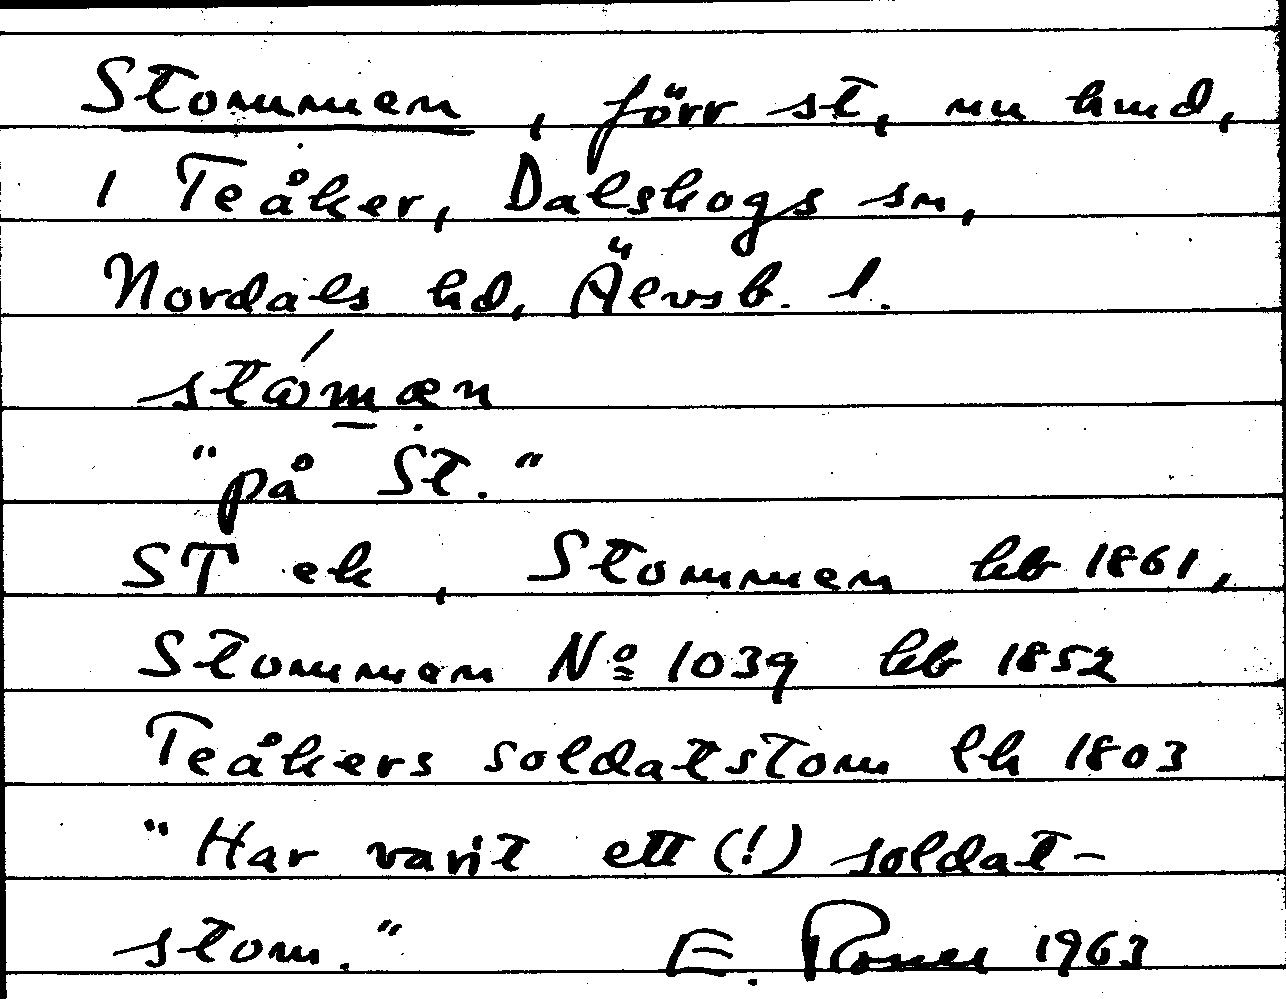 Stommen, förr st, nu hmd,
i Teåker, Dalskogs sn,
Nordals hd, Älvsb. l.
stǻmæn
"på St."
ST ek, Stommen hb 1861,
Stommen Nº 1039 hb 1852
Teåkers soldatstom lh 1803
"Har varit ett (!) soldat-
stom." E. 1963